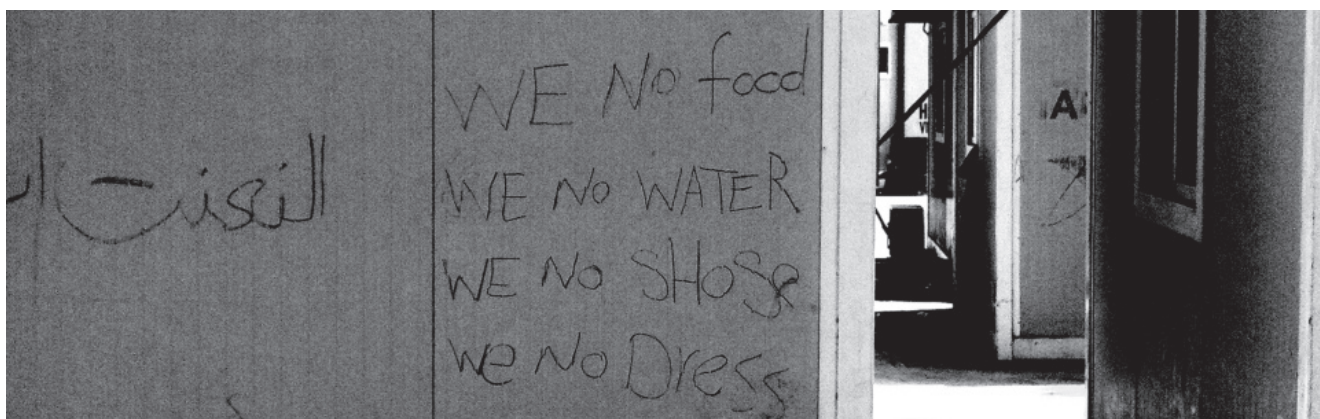 WE No food
WE No WATER
WE No SHOSe
We No Dress
A